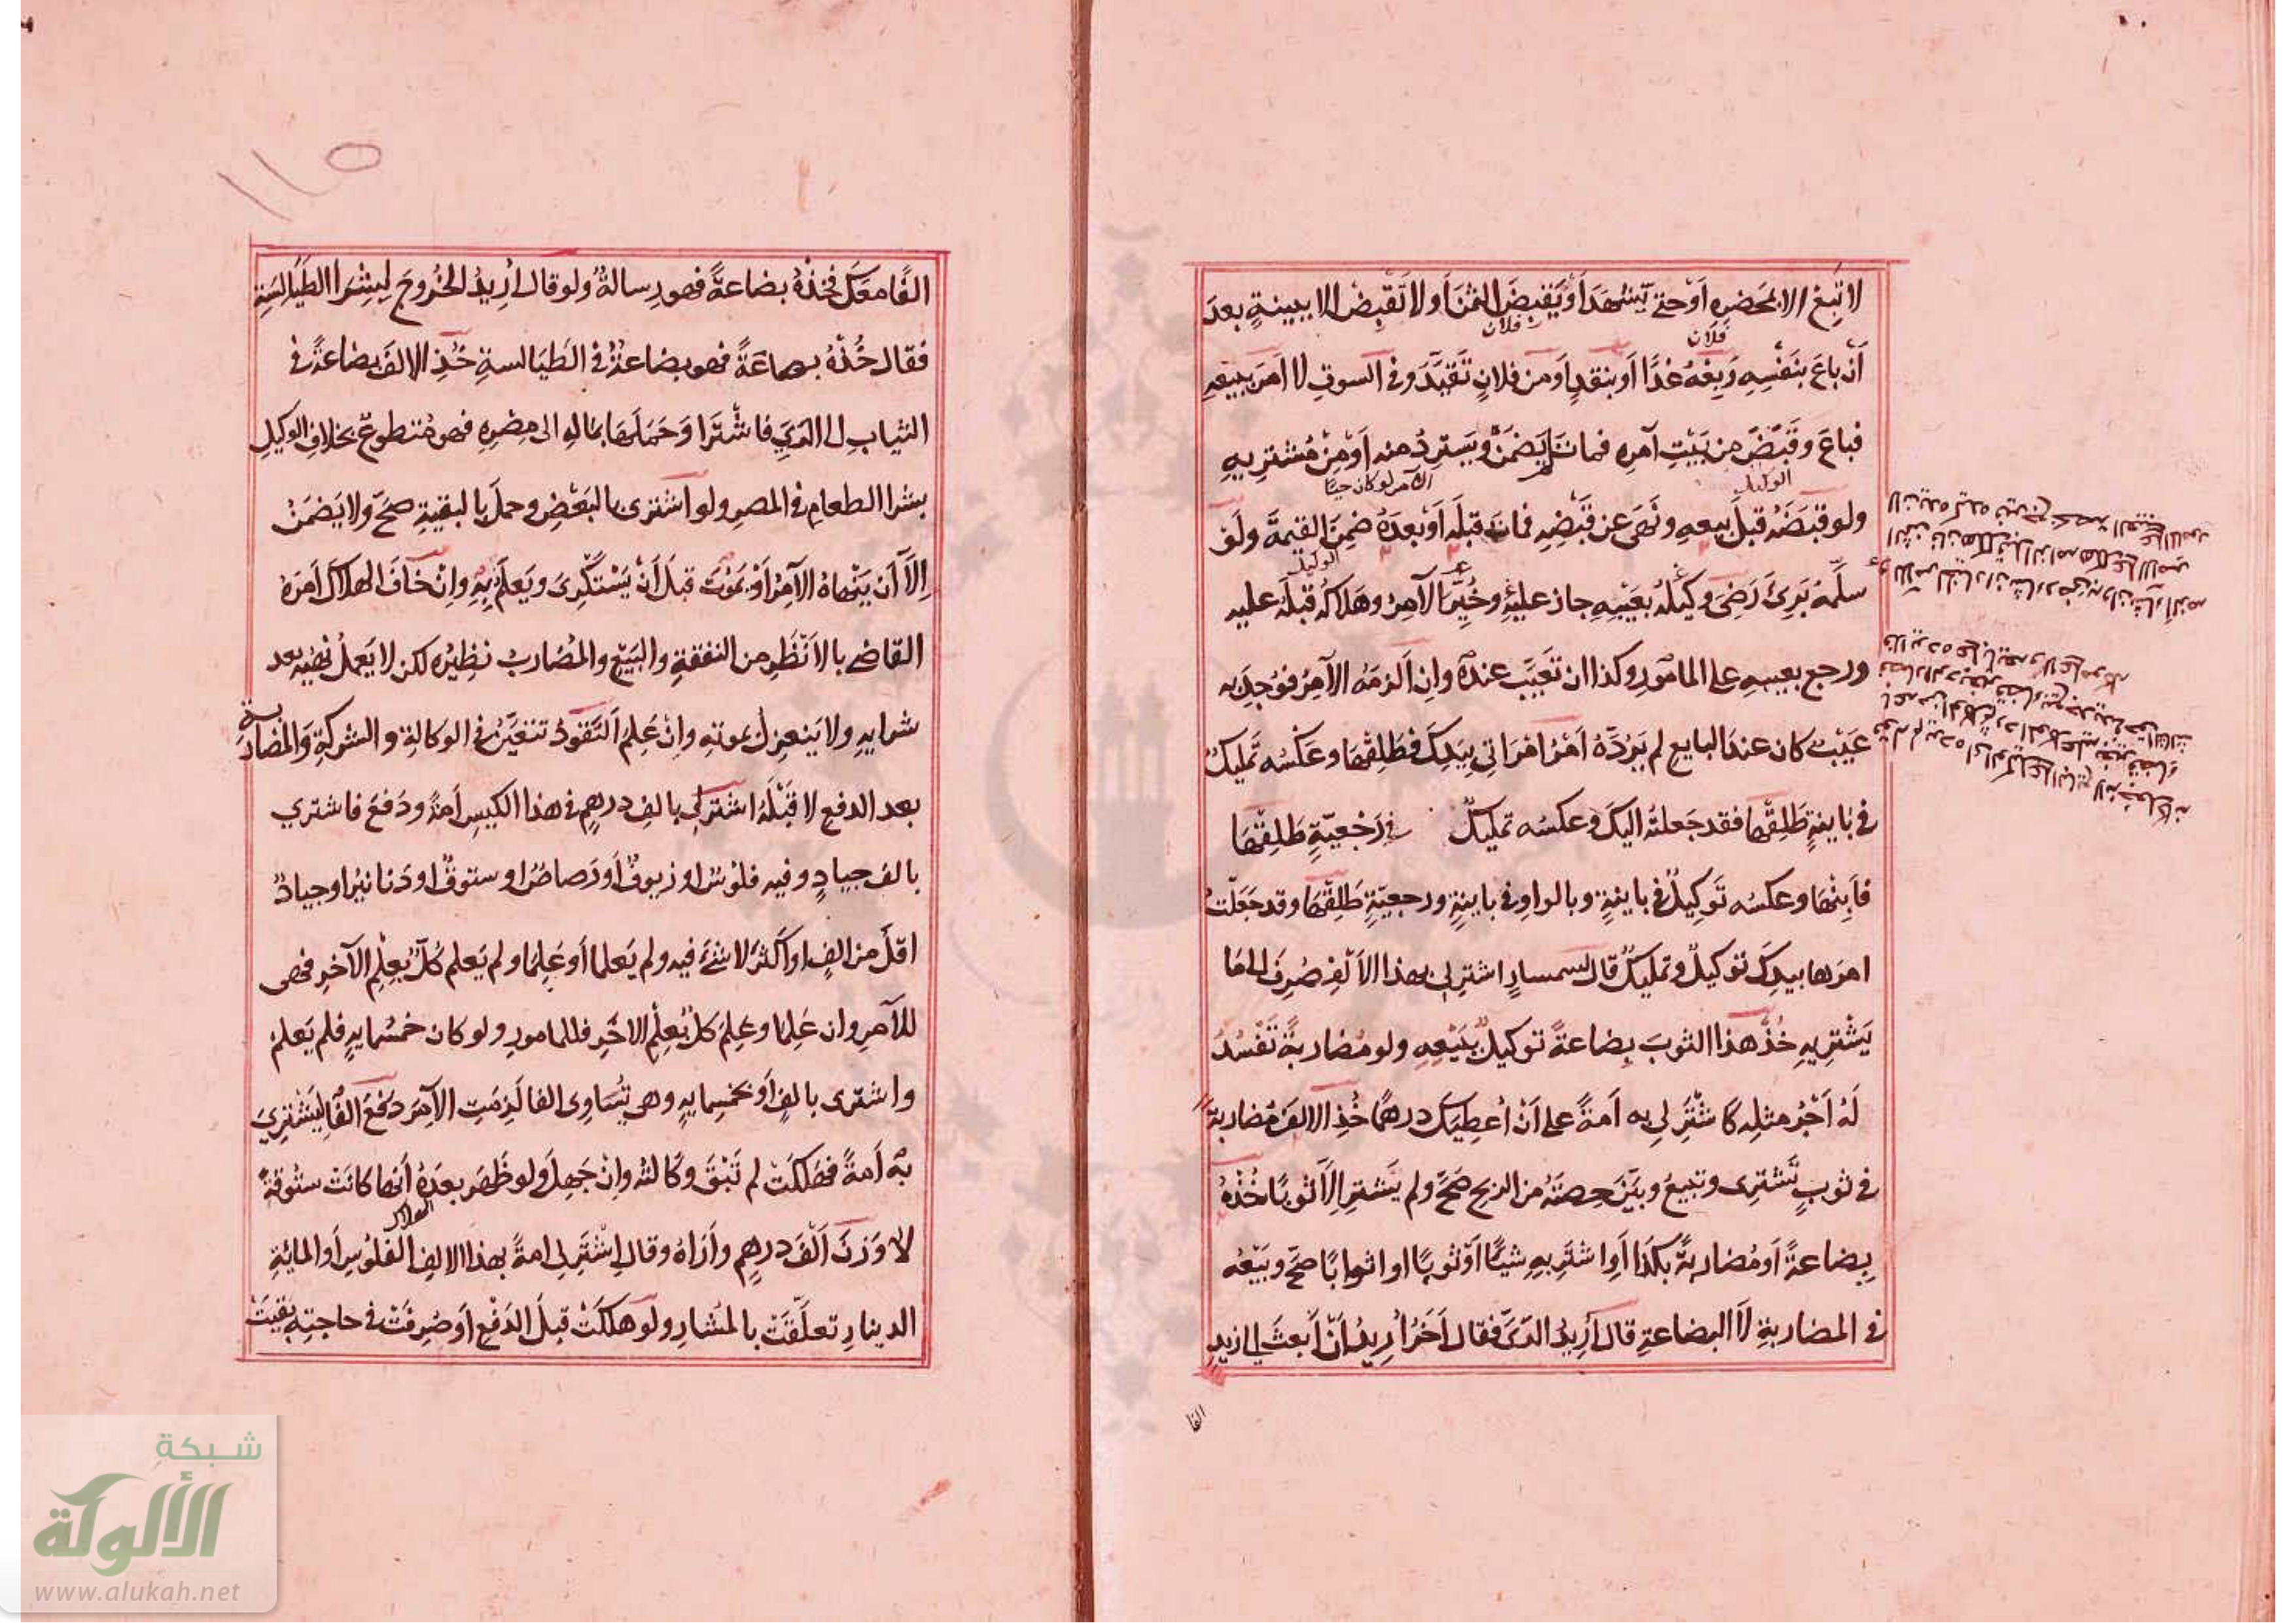 لا تَبِعْ الا بمَحضرِهِ اَوْ حتي تُشْهِدَ اَوْ يَقْبِضَ الثمنَ اَو لا تَقْبِضْ الا ببينةٍ بعدَ
فلان
فلان
اَنْ باعَ بنَفْسِهِ وَبِعْهُ غدًا او بنقدٍ اَو من فلانٍ تَقَيَّدَ وفي السوقِ لا اَمَرَ ببيعِهِ
فباعَ وقَبَضَ من بَيْتِ آمرِهِ فماتَ يَضمَنُ ويَستردُ منه اَوْ مِنْ مُشتريهِ
الوكيل
الآمر لو كان حيًا
ولو قبَضَهُ قبلَ بيعهِ ونَهَى عن قَبْضِهِ فماتَ قبلَه اَوْ بعدَهُ ضمِنَ القيمةَ ولَوْ
الوكيل
سلَّمهُ بَرِئَ رَضِيَ وكيلُهُ بعَيْبِهِ جاز عليهِ وخُيِّرَ الآمِرُ وهَلاكُهُ قبلَه عليه
ورجع بعيبهِ على المامورِ وكذا ان تَعَيَّبَ عندهُ وان اَلزمَهُ الآمِرُ فوُجِدَ به
عَيْبٌ كان عند البايعِ لم يَرُدَّهُ اَمْرُ امْرَاتي بيَدِكَ فطَلِّقْهَا وعَكْسُه تَمليكٌ
في بَاينةٍ طَلِّقْهَا فقد جَعلتُه اليكَ وعكسُه تمليكٌ في رَجْعيّةٍ طَلِّقْهَا
فاَبِنْهَا وعكسُه تَوكِيلٌ في باينةٍ وبالواوِ في باينةٍ ورجعيّةٍ طَلِّقْهَا وقد جَعَلْتُ
امرَها بيدِكَ توكيلٌ وتمليكٌ قال لسمسارٍ اشترِ لي بهذا الاَلْفِ صُرِفَ الى مَا
يَشْتَرِيهِ خُذْ هذا الثوبَ بِضاعةً توكيلٌ ببَيْعِهِ ولو مُضاربةً تَفْسُدُ
لَهُ اَجْرُ مثلِه كَاشْتَرِ لي به اَمةً على اَنْ اُعطِيَكَ درهمًا خُذِ الالفَ مُضاربةً
في ثوبٍ تَشترِى وتبيعُ وبَيَّنَ حِصتَهُ من الربحِ صَحَّ ولم يَشترِ اِلاَّ ثوبًا خُذْهُ
بِضاعةً اَو مُضاربةً بكَذَا اَوِ اشْتَرِ بهِ شيئًا اَوْ ثوبًا او اثوابًا صَحَّ وبَيْعُه
في المضاربةِ لاَ البضاعةِ قال اُرِيدُ الرَّىَّ فقال آخَرُ اُرِيدُ اَنْ اَبعثَ الى زيدٍ
الفا
١١٥
الفًا معَكَ فخُذْهُ بضاعةً فهو رِسالةٌ ولو قال اُرِيدُ الخُروجَ لشِرَا الطَيَالسَةِ
فقال خُذْهُ بضاعَةً فهو بضاعةٌ في الطَيَالسةِ خُذِ الالفَ بضاعةً في
الثيابِ الى الرَيِّ فاشْتَرَا وَحَمَلَهَا بمَالِهِ الى مِصْرِهِ فهو مُتطوعٌ بخلافِ الوكيلِ
بشرا الطعامِ في المصرِ ولو اشترى بالبَعْضِ وحملَ بالبقيةِ صَحَّ ولا يَضمَنُ
اِلاَّ اَن يَنْهاهُ الآمِرُ اَوْ يَمُوتَ قبلَ اَنْ يَسْتَكْرِىَ ويَعلمَ بِهِ وانْ خافَ الهلاكَ اَمرَهُ
القاضي بالاَنْظَرِ من النفقةِ والبَيْعِ والمُضاربُ نظيرُه لكن لا يَعملُ نهيُه بعد
شرايهِ ولا يَنعزلُ بموتهِ وانْ عَلِمَ اَلنُّقودُ تتعَيَّنُ في الوكالةِ والشركةِ وَالمُضاربةِ
بعد الدفعِ لا قَبْلَهُ اشترِ لي بالفِ درهمٍ في هذا الكيسِ اَمةً ودَفَعَ فاشتري
بالفٍ جيادٍ وفيه فلوسٌ او زيوفٌ اَو رَصاصٌ او ستوقٌ او دَنانيرُ او جيادٌ
اقلُّ من الفٍ او اَكثرُ لا شئَ فيه ولم يَعلما اَو عَلِمَا ولم يَعلم كُلٌّ بعِلْمِ الآخرِ فهى
للآمرِ وان عَلِمَا وعَلِمَ كلٌّ بعِلْمِ الاخرِ فللمامورِ ولو كان خمسُمايةٍ فلم يَعلمْ
واشترى بالفٍ اَو بخمسِمايةٍ وهى تُسَاوِى الفا لَزِمَتِ الآمِرَ دَفَعَ اَلفًا ليَشْتَرِيَ
به اَمةً فهَلَكَتْ لم تَبْقَ وَكالتُه وانْ جَهِلَ ولو ظَهَر بعدَهُ اَنها كانَتْ ستُوقةً
الهلاك
لا وَزنَ اَلْفَ درهمٍ وأَرَاهُ وقال اشْتَرِ لي امةً بهذا الالفِ الفُلُوسِ اَو المائةِ
الدينارِ تعلَّقَتْ بالمُشَارِ ولَو هلَكَتْ قبلَ الدَفْعِ اَوْ صُرِفَتْ في حاجتِهِ بَقِيَتْ
شبكة
الألوكة
www.alukah.net